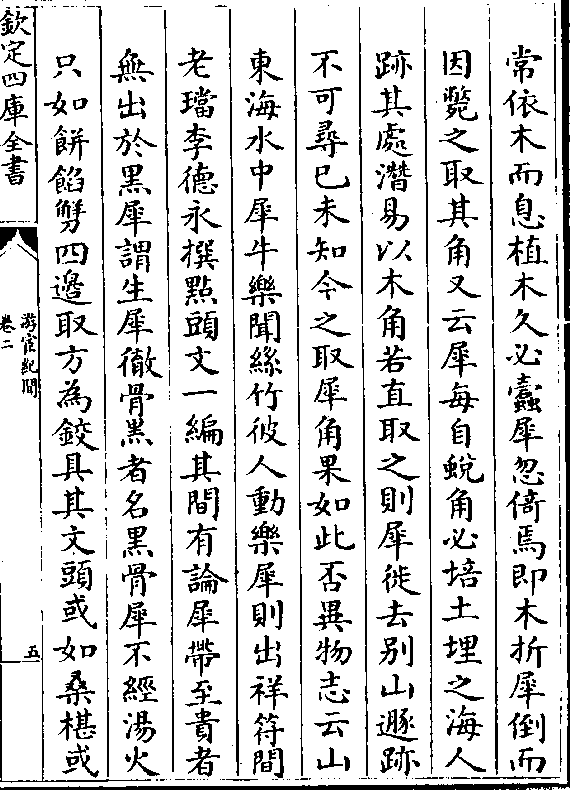 常依木而息植木久必蠧犀忽倚焉即木折犀倒而
因斃之取其角又云犀每自蛻角必培土埋之海人
跡其處潛易以木角若直取之則犀徙去别山遯跡
不可尋已未知今之取犀角果如此否異物志云山
東海水中犀牛樂聞絲竹彼人動樂犀則出祥符間
老璫李德永撰點頭文一編其間有論犀帶至貴者
無出於黑犀謂生犀徹骨黑者名黑骨犀不經湯火
只如餅餡剪四邉取方為鉸具其文頭或如桑椹或
欽定四庫全書
游宦紀聞
卷二
五